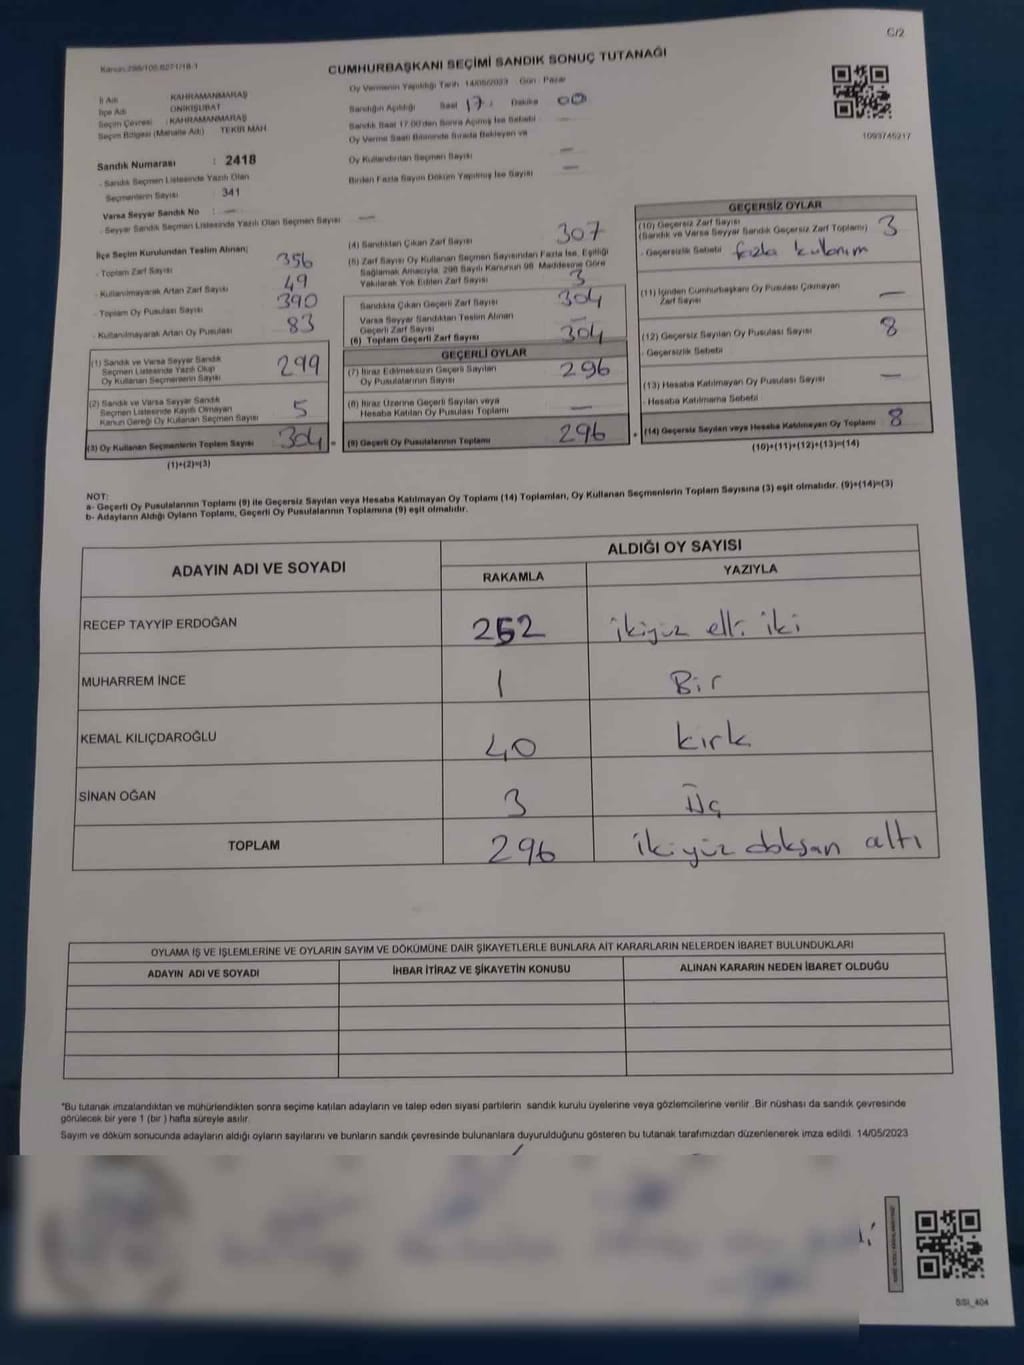 C/2
Kanun:298/105-6271/18-1
CUMHURBAŞKANI SEÇİMİ SANDIK SONUÇ TUTANAĞI
Oy Vermenin Yapıldığı Tarih 14/05/2023 Gün : Pazar
İl Adı KAHRAMANMARAŞ
İlçe Adı ONİKİŞUBAT
Seçim Çevresi : KAHRAMANMARAŞ
Seçim Bölgesi (Mahalle Adı) TEKİR MAH
Sandığın Açıldığı Saat 17 : Dakika 00
Sandık Saat 17.00'den Sonra Açılmış İse Sebebi —
Oy Verme Saati Bitiminde Sırada Bekleyen ve
Oy Kullandırılan Seçmen Sayısı —
Birden Fazla Sayım Döküm Yapılmış İse Sayısı —
1093745217
Sandık Numarası : 2418
- Sandık Seçmen Listesinde Yazılı Olan
Seçmenlerin Sayısı 341
Varsa Seyyar Sandık No : —
- Seyyar Sandık Seçmen Listesinde Yazılı Olan Seçmen Sayısı —
İlçe Seçim Kurulundan Teslim Alınan;
- Toplam Zarf Sayısı 356
- Kullanılmayarak Artan Zarf Sayısı 49
- Toplam Oy Pusulası Sayısı 390
- Kullanılmayarak Artan Oy Pusulası 83
(1) Sandık ve Varsa Seyyar Sandık
Seçmen Listesinde Yazılı Olup
Oy Kullanan Seçmenlerin Sayısı 299
(2) Sandık ve Varsa Seyyar Sandık
Seçmen Listesinde Kayıtlı Olmayan
Kanun Gereği Oy Kullanan Seçmen Sayısı 5
(3) Oy Kullanan Seçmenlerin Toplam Sayısı 304 =
(1)+(2)=(3)
(4) Sandıktan Çıkan Zarf Sayısı 307
(5) Zarf Sayısı Oy Kullanan Seçmen Sayısından Fazla İse, Eşitliği
Sağlamak Amacıyla, 298 Sayılı Kanunun 98. Maddesine Göre
Yakılarak Yok Edilen Zarf Sayısı 3
Sandıkta Çıkan Geçerli Zarf Sayısı 304
Varsa Seyyar Sandıktan Teslim Alınan
Geçerli Zarf Sayısı —
(6) Toplam Geçerli Zarf Sayısı 304
GEÇERLİ OYLAR
(7) İtiraz Edilmeksizin Geçerli Sayılan
Oy Pusulalarının Sayısı 296
(8) İtiraz Üzerine Geçerli Sayılan veya
Hesaba Katılan Oy Pusulası Toplamı —
(9) Geçerli Oy Pusulalarının Toplamı 296 +
GEÇERSİZ OYLAR
(10) Geçersiz Zarf Sayısı
(Sandık ve Varsa Seyyar Sandık Geçersiz Zarf Toplamı) 3
- Geçersizlik Sebebi fazla kullanım
(11) İçinden Cumhurbaşkanı Oy Pusulası Çıkmayan
Zarf Sayısı —
(12) Geçersiz Sayılan Oy Pusulası Sayısı 8
- Geçersizlik Sebebi
(13) Hesaba Katılmayan Oy Pusulası Sayısı —
- Hesaba Katılmama Sebebi
(14) Geçersiz Sayılan veya Hesaba Katılmayan Oy Toplamı 8
(10)+(11)+(12)+(13)=(14)
NOT:
a- Geçerli Oy Pusulalarının Toplamı (9) ile Geçersiz Sayılan veya Hesaba Katılmayan Oy Toplamı (14) Toplamları, Oy Kullanan Seçmenlerin Toplam Sayısına (3) eşit olmalıdır. (9)+(14)=(3)
b- Adayların Aldığı Oyların Toplamı, Geçerli Oy Pusulalarının Toplamına (9) eşit olmalıdır.
ADAYIN ADI VE SOYADI
ALDIĞI OY SAYISI
RAKAMLA YAZIYLA
RECEP TAYYİP ERDOĞAN 252 ikiyüz elli iki
MUHARREM İNCE 1 Bir
KEMAL KILIÇDAROĞLU 40 kırk
SİNAN OĞAN 3 Üç
TOPLAM 296 ikiyüz doksan altı
OYLAMA İŞ VE İŞLEMLERİNE VE OYLARIN SAYIM VE DÖKÜMÜNE DAİR ŞİKAYETLERLE BUNLARA AİT KARARLARIN NELERDEN İBARET BULUNDUKLARI
ADAYIN ADI VE SOYADI İHBAR İTİRAZ VE ŞİKAYETİN KONUSU ALINAN KARARIN NEDEN İBARET OLDUĞU
*Bu tutanak imzalandıktan ve mühürlendikten sonra seçime katılan adayların ve talep eden siyasi partilerin sandık kurulu üyelerine veya gözlemcilerine verilir .Bir nüshası da sandık çevresinde
görülecek bir yere 1 (bir ) hafta süreyle asılır.
Sayım ve döküm sonucunda adayların aldığı oyların sayılarını ve bunların sandık çevresinde bulunanlara duyurulduğunu gösteren bu tutanak tarafımızdan düzenlenerek imza edildi. 14/05/2023
SSI_404